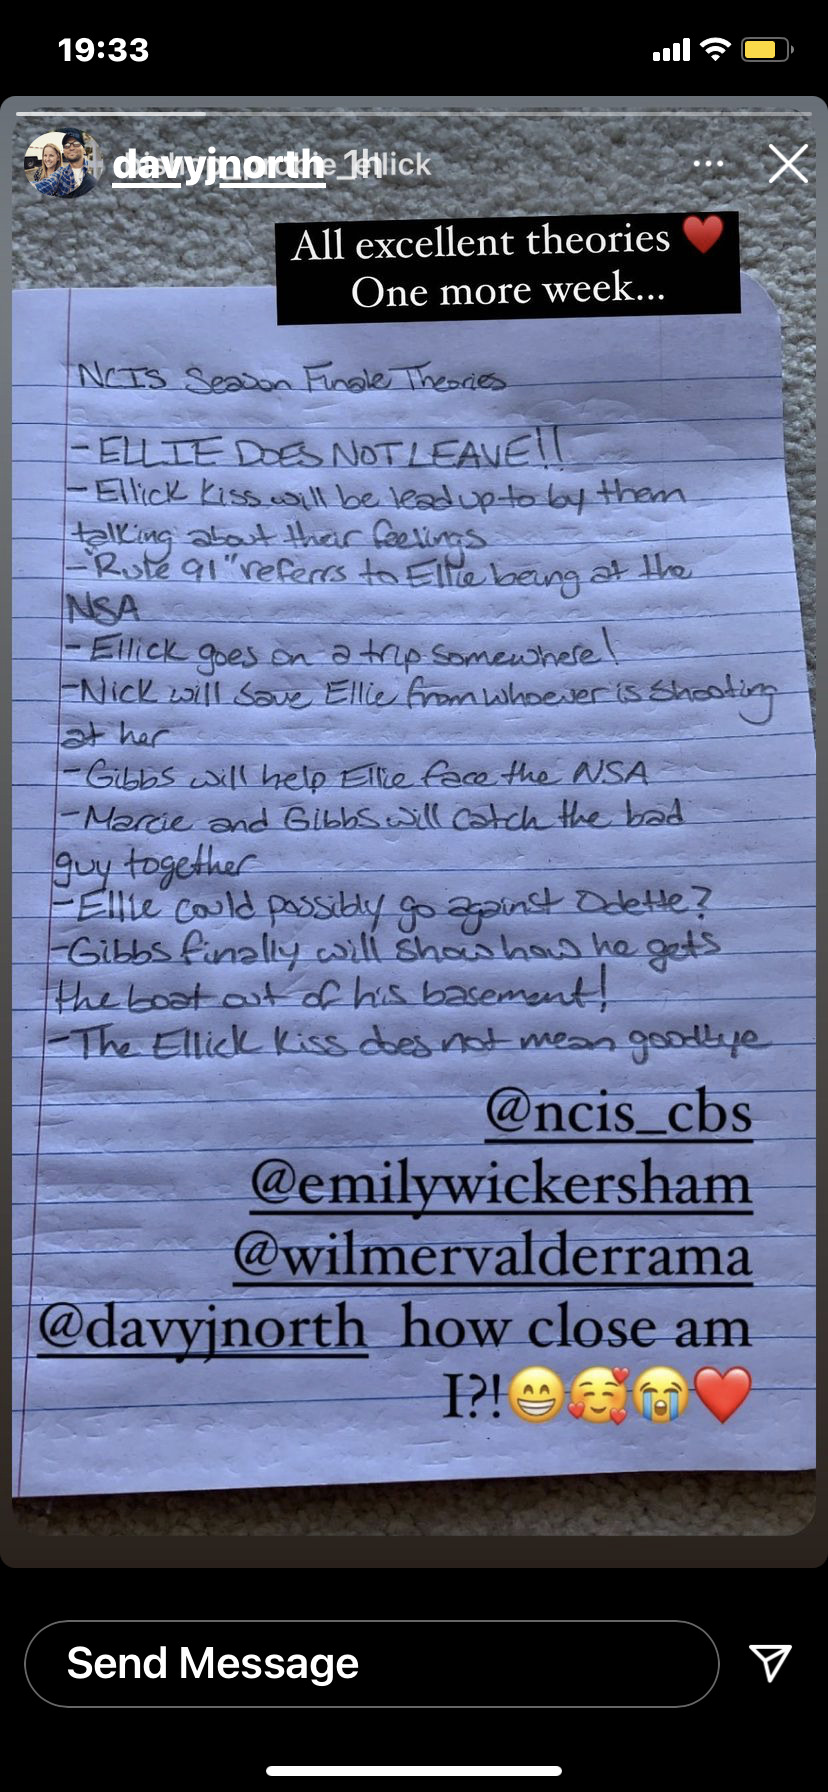 19:33
davyjnorth 1h
All excellent theories ❤️
One more week...
NCIS Season Finale Theories
- ELLIE DOES NOT LEAVE!!
- Ellick kiss will be lead up to by them
talking about their feelings
- "Rule 91" referrs to Ellie being at the
NSA
- Ellick goes on a trip somewhere!
- Nick will save Ellie from whoever is shooting
at her
- Gibbs will help Ellie face the NSA
- Marcie and Gibbs will catch the bad
guy together
- Ellie could possibly go against Odette?
- Gibbs finally will show how he gets
the boat out of his basement!
- The Ellick kiss does not mean goodbye
@ncis_cbs
@emilywickersham
@wilmervalderrama
@davyjnorth how close am
I?!😁🥰😭❤️
Send Message